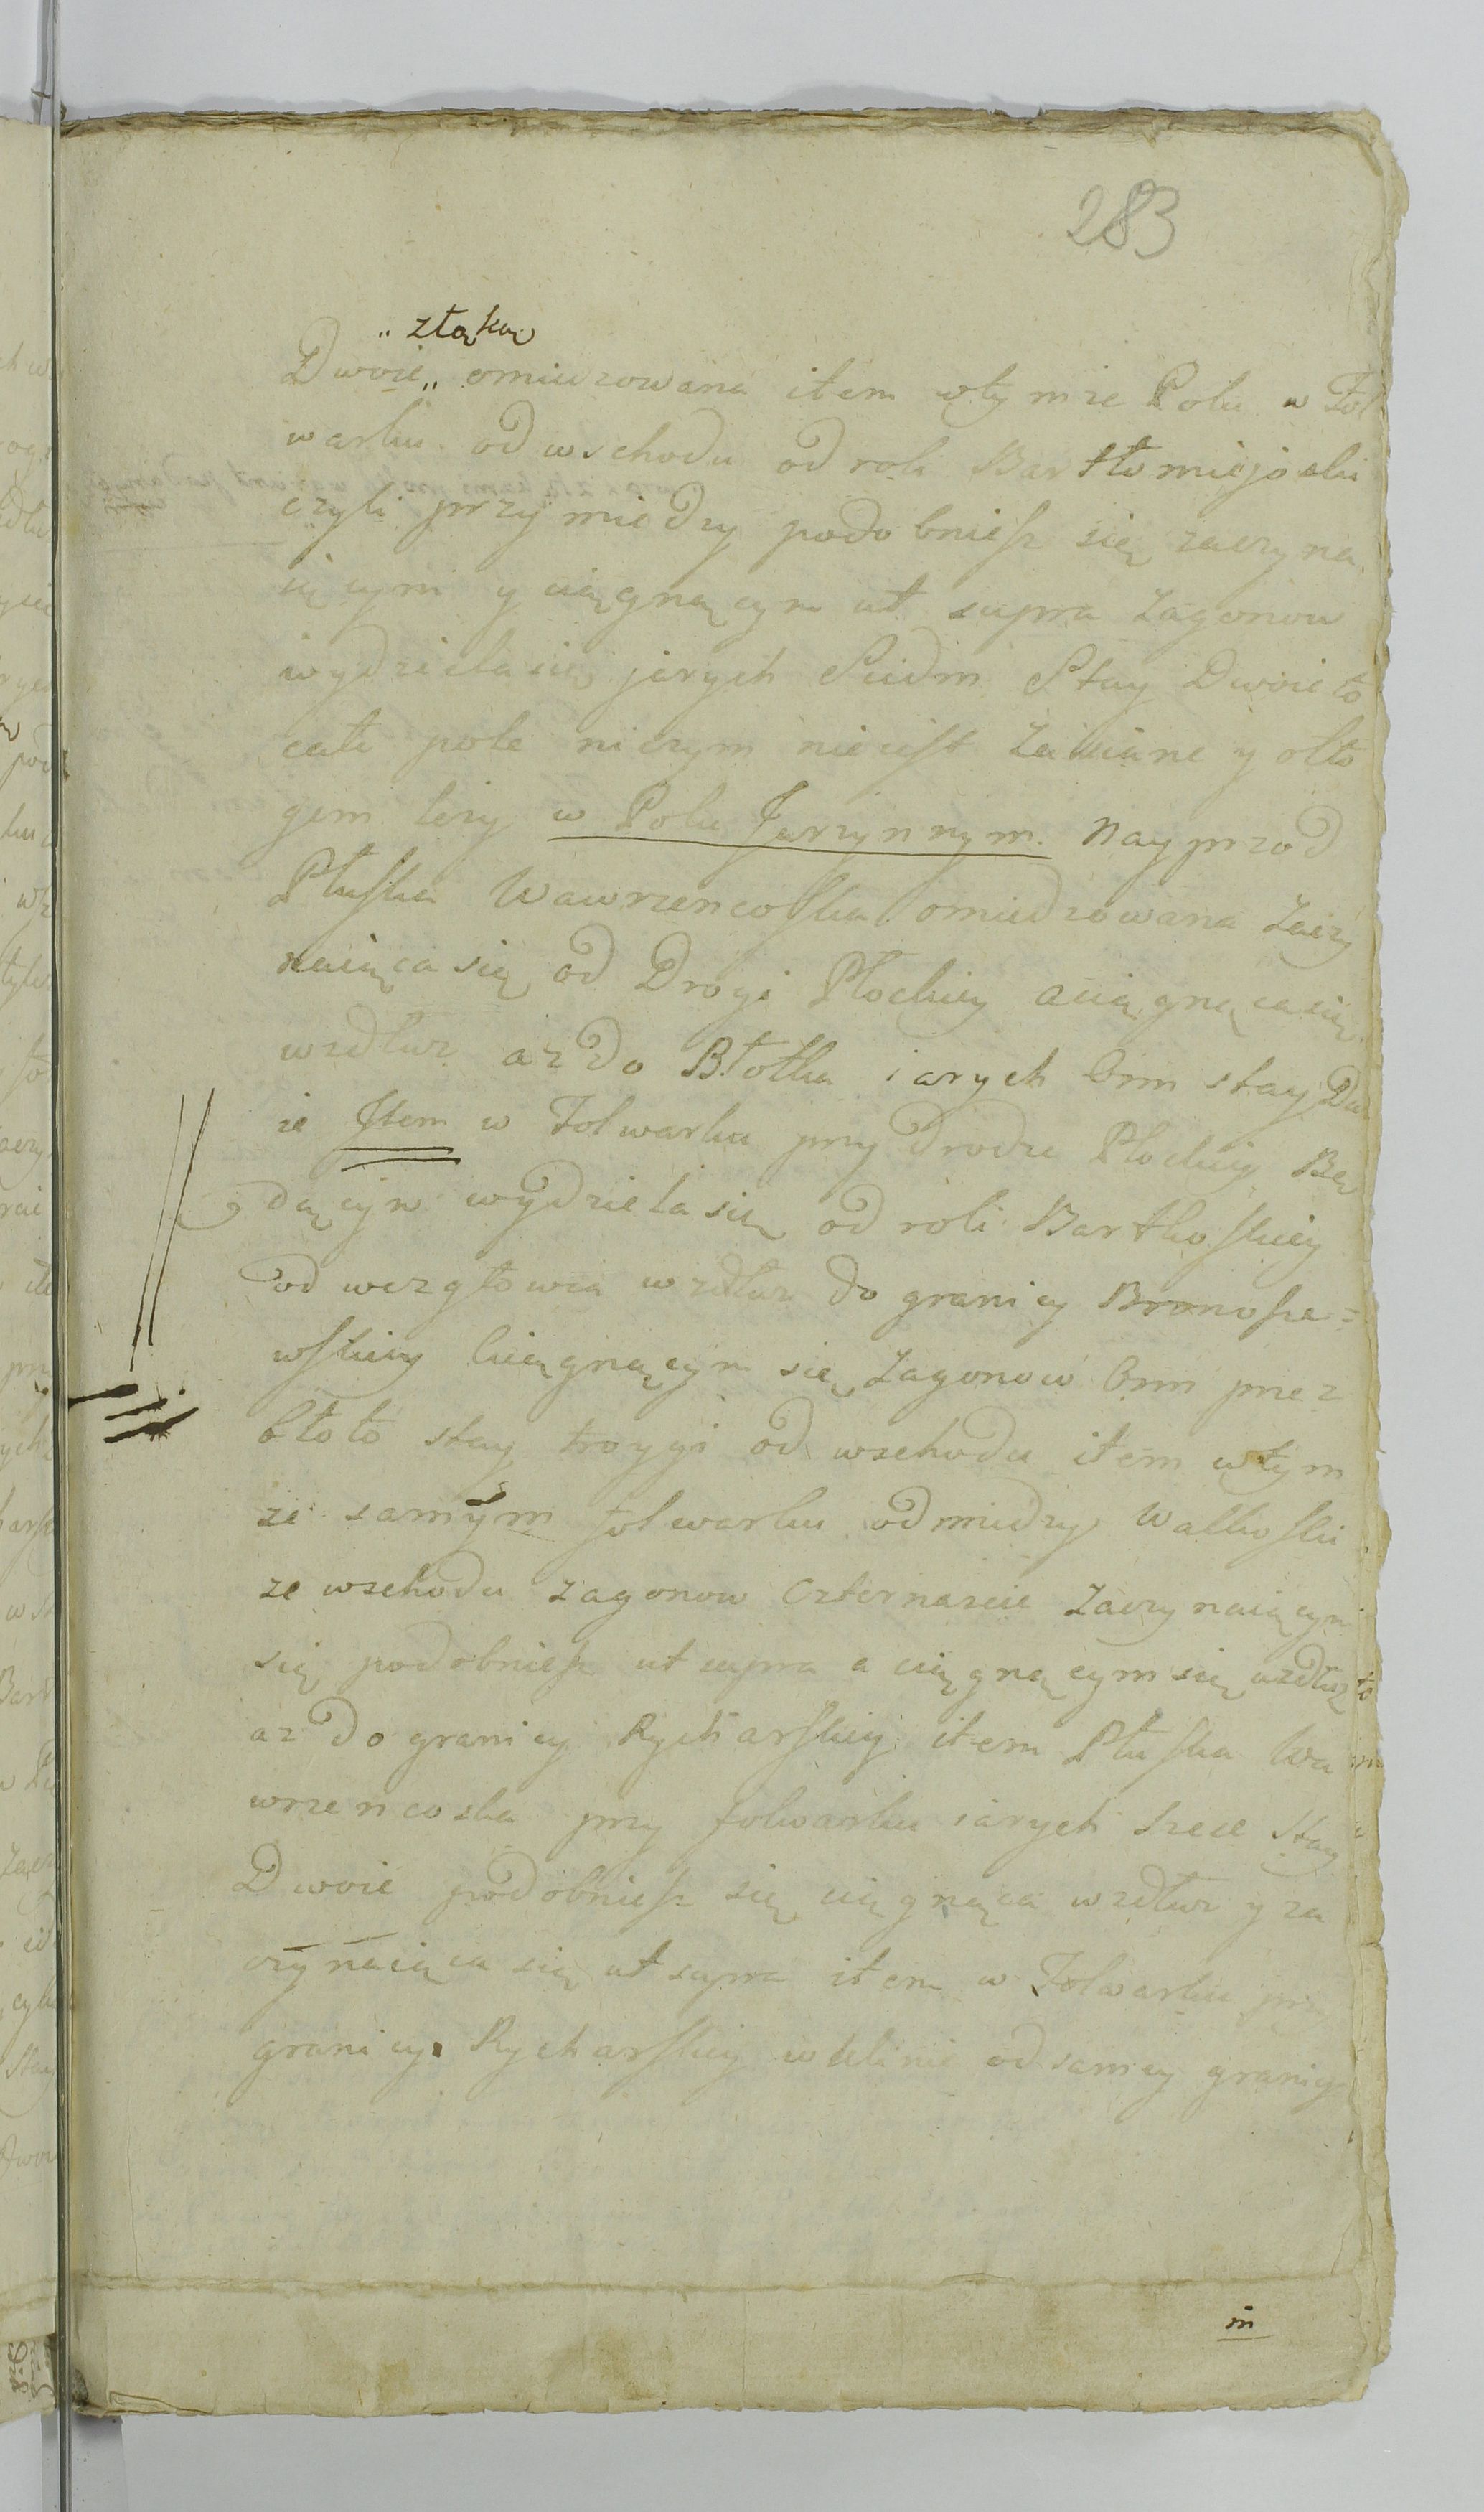 283
" złąką
Dwoie " omiedzowana item wtymze Polu w Fol
warku od wschodu od roli Bartłomiejoski
czyli przy miedzy podobniesz się zaczyna
iącymi y ciągnącym ut supra Zagonow
wydziela się jarych Siedm Stay Dwoie to
całe pole niczym nieiest Zasiane y odło
giem lezy w Polu Jarzynnym. Nayprzod
Płuska Wawrzencoska omiedzowana Zaczy
naiąca się od Drogi Płockiey aciągnąca się
wzdłuz az do Błotka iarych Ośm stay Dwo
ie Item w Folwarku przy drodze Płockiey Bę
dącym wydziela się od roli Bartkoskiey
od wezgłowia wzdłuz do granicy Bronosze=
wskiey Ciągnącym się Zagonow Ośm przez
błoto stay troygi od wschodu item wtym
ze samym folwarku od miedzy Walkoski
ze wschodu zagonow czternascie Zaczynaiącym
się podobniesz ut supra a ciągnącym się wzdłuz
az do granicy Rycharskiey item Płuska Wa
wrzencoska przy folwarku iarych szesc Stay
Dwoie podobniesz się ciągnąca wzdłuz y za
czynaiąca się ut supra item w Folwarku przy
granicy Rycharskiey w klinie od samey granicy